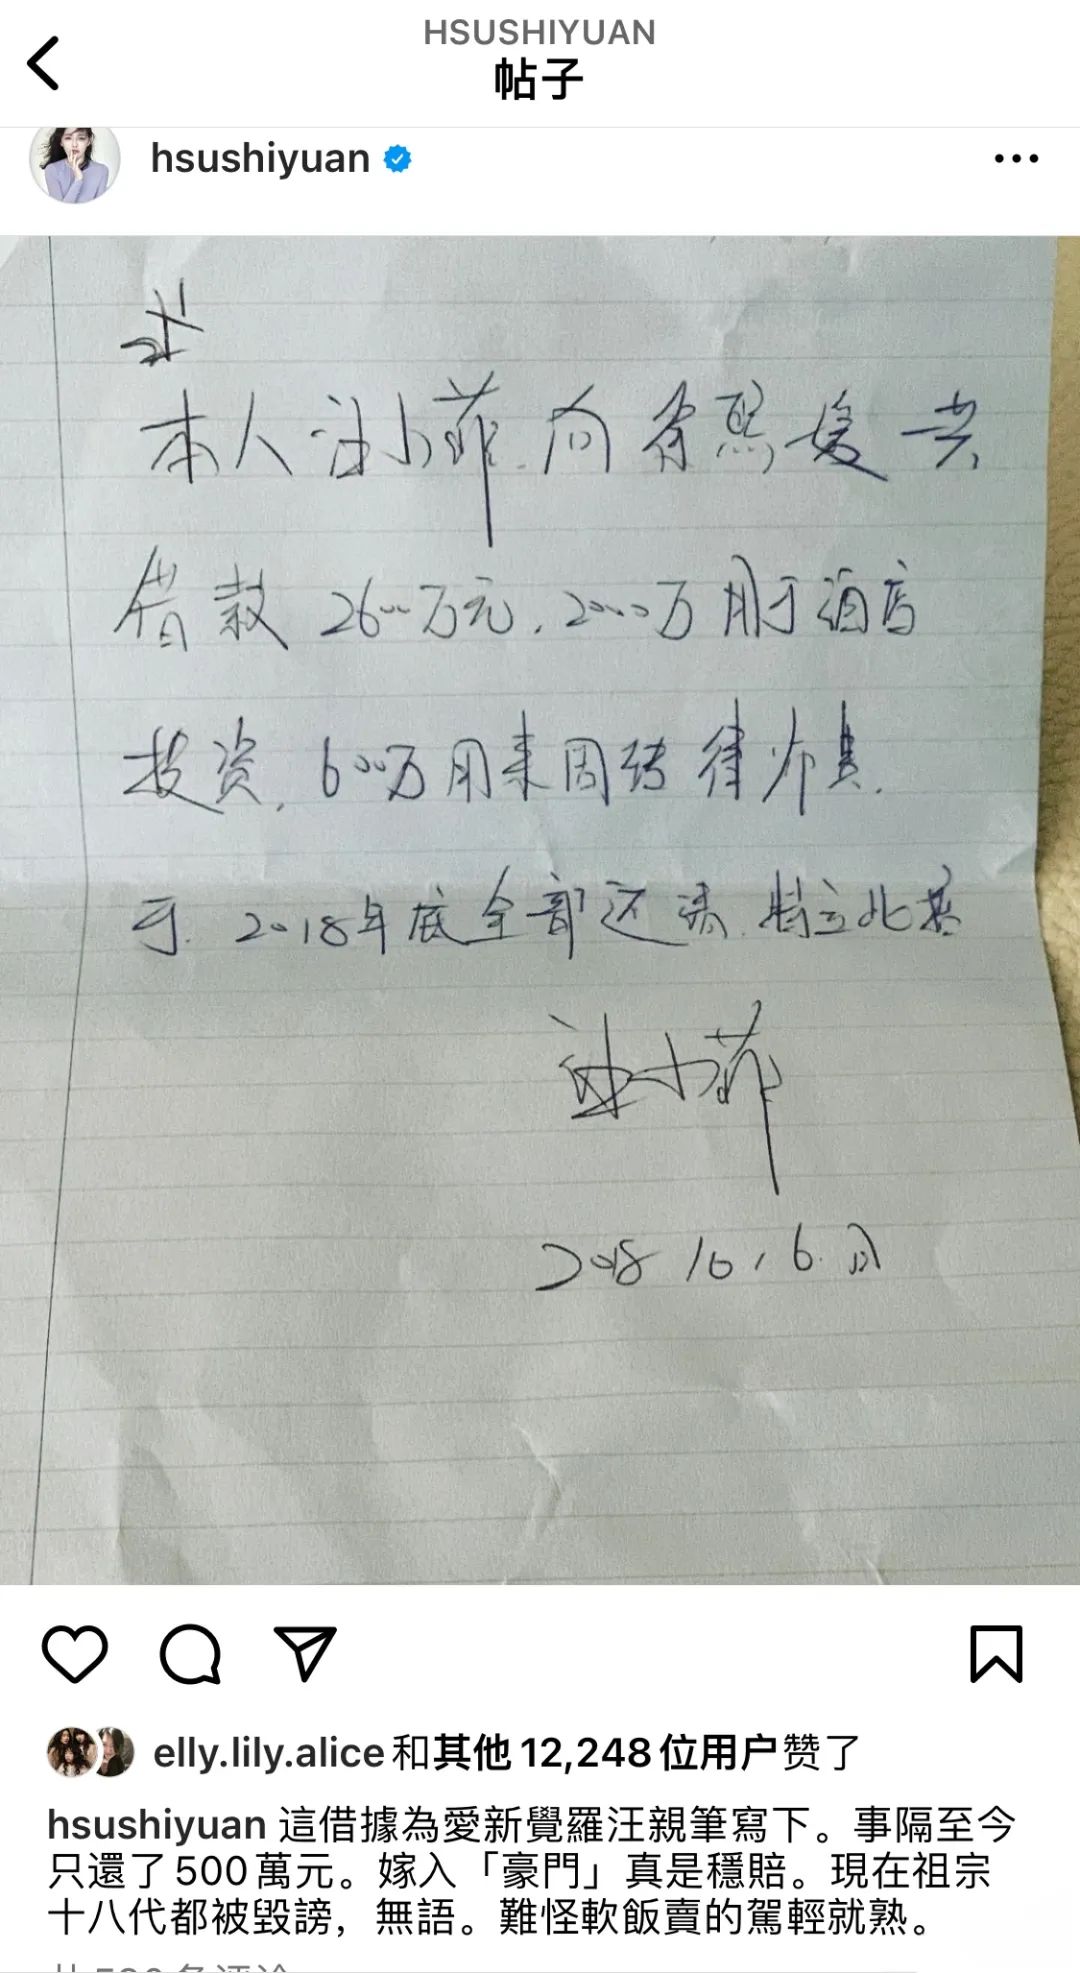 HSUSHIYUAN
帖子
hsushiyuan
本人汪小菲向徐熙媛共
借款2600万元.2000万用于酒店
投资,600万用来周转律师费.
于.2018年底全部还清.特立此
汪小菲
2018 10,6.
elly.lily.alice和其他 12,248 位用户赞了
hsushiyuan 這借據為愛新覺羅汪親筆寫下。事隔至今
只還了500萬元。嫁入「豪門」真是穩賠。現在祖宗
十八代都被毀謗，無語。難怪軟飯賣的駕輕就熟。